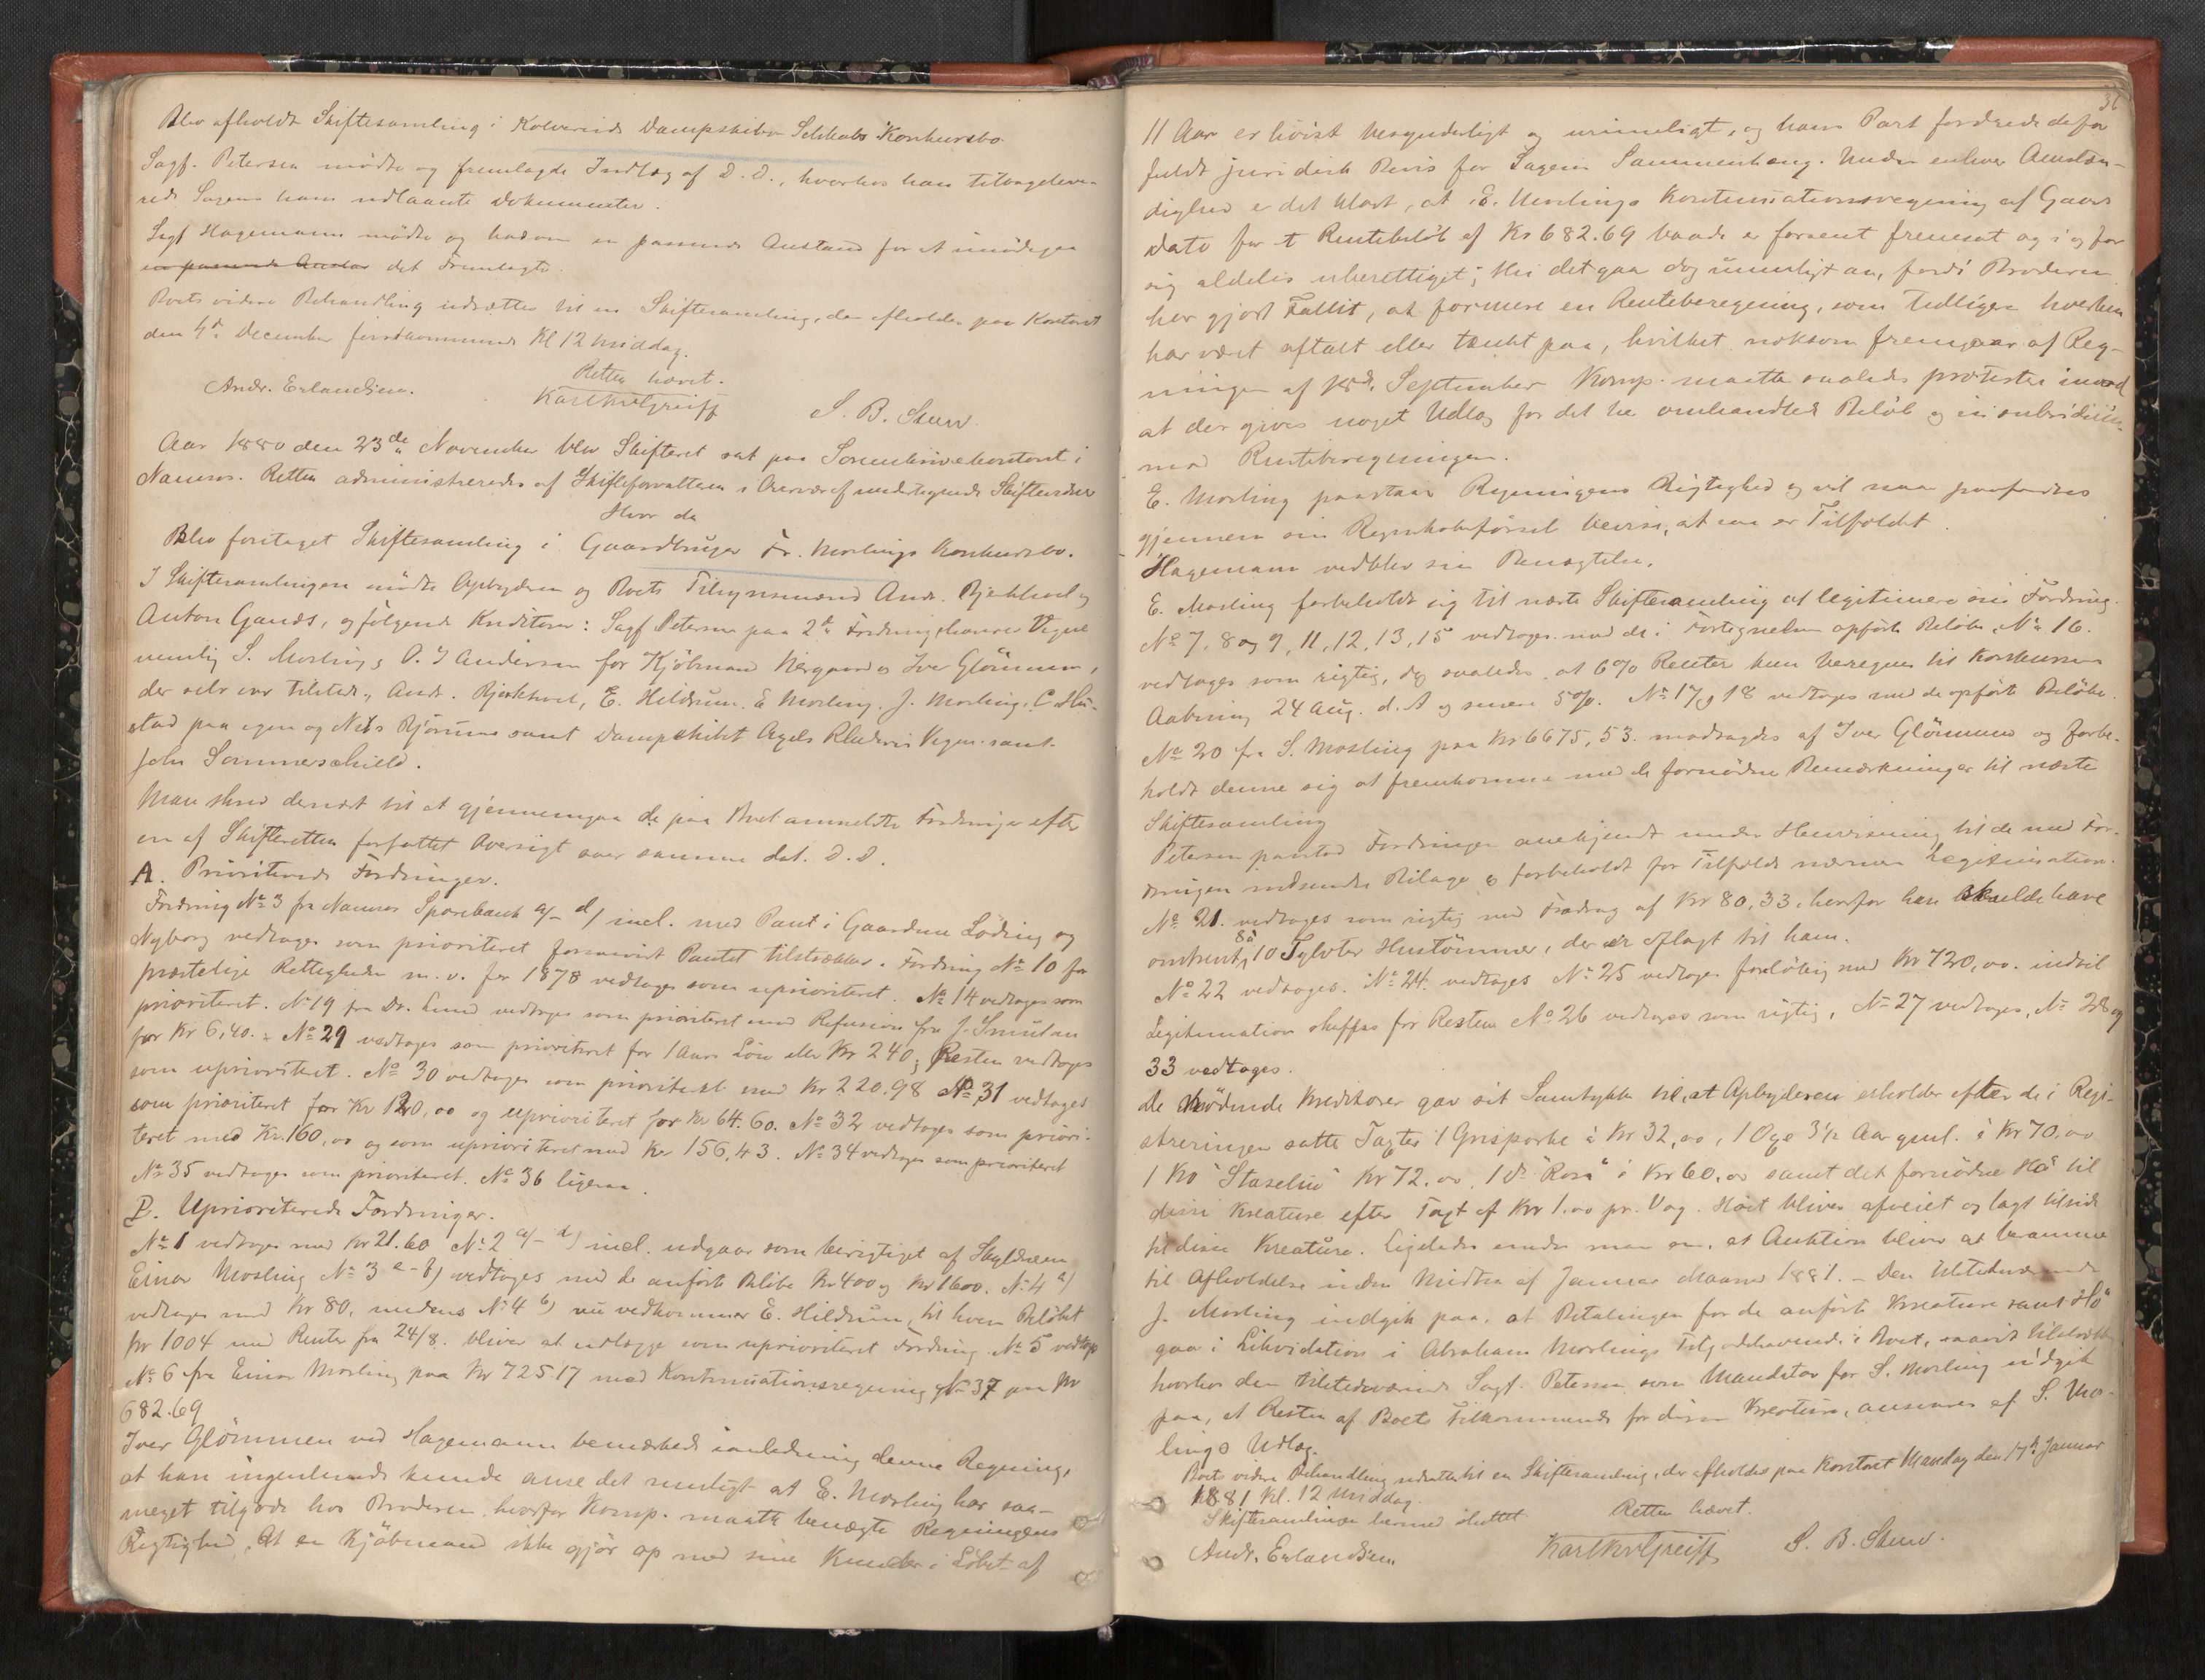 Blev afholdt Skiftesamling i Kolvereids Dampskibs Selskabs Konkursbo.
Sagf. Petersen mødte og fremlagde Indlæg af D. D., hvorhos han tilbageleve-
rede Sagens ham udlaante Dokumenter.
Sagf Hagemann mødte og bad om en passende Anstand for at imødegaa
det Fremlagte.
Boets videre Behandling udsættes til en Skiftesamling, der afholdes paa Kontoret
den 4de December førstkommende Kl 12 Middag.
Retten hævet.
Andr. Erlandsen. S. B. Stuw.
Aar 1880 den 23de November blev Skifteret sat paa Sorenskriverkontoret i
Namsos. Retten administreredes af Skifteforvalteren i Overvær af undertegnede Skiftevidner
Hvor da
Blev foretaget Skiftesamling i Gaardbruger Fr. Moslings Konkursbo.
I Skiftesamlingen mødte Opbyderen og Boets Tilsynsmænd Andr. Bjerkhoel og
Anton Gands, og følgende Kreditorer: Sagf Petersen paa 2de Fordringshavere Vegne
nemlig S. Mosling og O. J Andersen for Kjøbmand og Iver Glömmen,
der selv var tilstede, Andr. Bjerkhoel, E. Hildrum. E Mosling. J. Mosling. C Hu-
stad paa egne og Nils Bjørums samt Dampskibet Rhederis Vegne samt
John Sommerschield.
Man skred dernæst til at gjennemgaa de paa Boet anmeldte Fordringer efter
en af Skifteretten forfattet Oversigt over samme dat. D. D.
A. Prioriterede Fordringer.
Fordring No 3 fra Namsos Sparebank a/-d/ incl. med Pant i Gaardene Løding og
Nyborg vedtages som prioriteret forsaavidt Pantet tilstrækker. Fordring No 10 for
præstelige Rettigheder m. v. for 1878 vedtages som uprioriteret. No 14 vedtages som
prioriteret. No 19 fra Dr. Lund vedtages som prioriteret med Refusion fra J.
for Kr 6,40. No 29 vedtages som prioriteret for 1 Aars Løn eller Kr 240; Resten vedtages
som uprioriteret. No 30 vedtages som prioriteret med Kr 220.98 No 31 vedtages
som prioriteret for Kr 120,00 og uprioriteret for Kr 64.60. No 32 vedtages som priori-
teret med Kr. 160,00 og som uprioriteret med Kr 156,43. No 34 vedtages som prioriteret
No 35 vedtages som prioriteret. No 36 ligesaa.
B. Uprioriterede Fordringer.
No 1 vedtages med Kr 21.60 No 2 a/-d/ incl. udgaar som berigtiget af Skyldneren
Einar Mosling No 3 e-f/ vedtages med de anførte Beløbe Kr 400 og Kr 1600. No 4 a/
vedtages med Kr 80, medens No 4 b/ nu vedkommer E. Hildrum, til hvem Beløbet
Kr 1004 med Renter fra 24/8. bliver at udlægge som uprioriteret Fordring. No 5 vedtages
No 6 fra Einar Mosling paa Kr 725.17 med Kontinuationsregning No 37 paa Kr
682.69
Iver Glömmen ved Hagemann bemærkede i anledning denne Regning,
at han ingenlunde kunde anse det rimeligt at E. Mosling har saa-
meget tilgode hos Broderen, hvorfor Komp. maatte benægte Regningens
Rigtighed. At en Kjøbmand ikke gjør op med sine Kunder i Løbet af
36
11 Aar er høist besynderligt og urimeligt, og hans Part fordrede derfor
fuldt juridisk Bevis for Sagens Sammenhæng. Under enhver Omstæn-
dighed er det klart, at E. Moslings Kontinuationsregning af Gaars
Dato for et Rentebeløb af Kr 682.69 baade er forsent fremsat og i og for
sig aldeles uberettiget; thi det gaar dog umuligt an, fordi Broderen
har gjort Fallit, at formere en Renteberegning, som tidligere hverken
har været aftalt eller tænkt paa, hvilket noksom fremgaar af Reg-
ningen af 18de September Komp. maatte saaledes protestere imod
at der gives noget Udlæg for det her omhandlede Beløb og in subsidium
mod Renteberegningen.
E. Mosling paastaar Regningens Rigtighed og vil naar paafordres
gjennem sin Regnskabsførsel bevise, at saa er Tilfældet.
Hagemann vedblev sin Benægtelse.
E. Mosling forbeholdt sig til næste Skiftesamling at legitimere sin Fordring.
No 7. 8 og 9, 11, 12, 13, 15 vedtages med de i Fortegnelsen opførte Beløbe. No 16.
vedtages som rigtig, dog saaledes at 6% Renter kun beregnes til Konkursens
Aabning 24 Aug. d. A og senere 5%. No 17 og 18 vedtages med de opførte Beløbe.
No 20 fra S. Mosling paa Kr 6675,53. modsagdes af Iver Glömmen og forbe-
holdt denne sig at fremkomme med de fornødne Bemærkninger til næste
Skiftesamling
Petersen paastod Fordringen anerkjendt under Henvisning til de med For-
dringen indsendte Bilage og forbeholdt for Tilfælde nærmere Legitimation.
No 21. vedtages som rigtig med Fradrag af Kr 80,33, herfor han skulde have
omtrent 8 à 10 Tylvter Hustømmer, der er aflagt til ham.
No 22 vedtages. No 24. vedtages No 25 vedtages foreløbig med Kr 720,00. indtil
Legitimation skaffes for Resten No 26 vedtages som rigtig, No 27 vedtages, No 28 og
33 vedtages.
De mødende Kreditorer gav sit Samtykke til, at Opbyderen erholder efter de i Regi-
streringen satte Taxter 1 Grisporke à Kr 32,00, 1 Oxe 3½ Aar gml. à Kr 70,00
1 Ko "Staselin" Kr 72.00. 1 do "Rosa" à Kr 60,00 samt det fornødne Hø til
disse Kreature efter Taxt af Kr 1.00 pr. Vog. Høiet bliver afveiet og lagt tilside
til disse Kreature. Ligeledes enedes man om, at Auktion bliver at beramme
til Afholdelse inden Midten af Januar Maaned 1881. – Den tilstedeværende
J. Mosling indgik paa, at Betalingen for de anførte Kreature samt Hø
gaar i Likvidation i Abraham Moslings Tilgodehavende i Boet, saavidt tilstrækker
hvorhos den tilstedeværende Sagf. Petersen som Mandatar for S. Mosling indgik
paa, at Resten af Boets Tilkommende for disse Kreature, ansvares af S. Mos-
lings Udlæg.
Boets videre Behandling udsattes til en Skiftesamling, der afholdes paa Kontoret Mandag den 17de Januar
1881 Kl. 12 Middag.
Skiftesamlingen hermed sluttet. Retten hævet.
Andr. Erlandsen. S. B. Stuw.